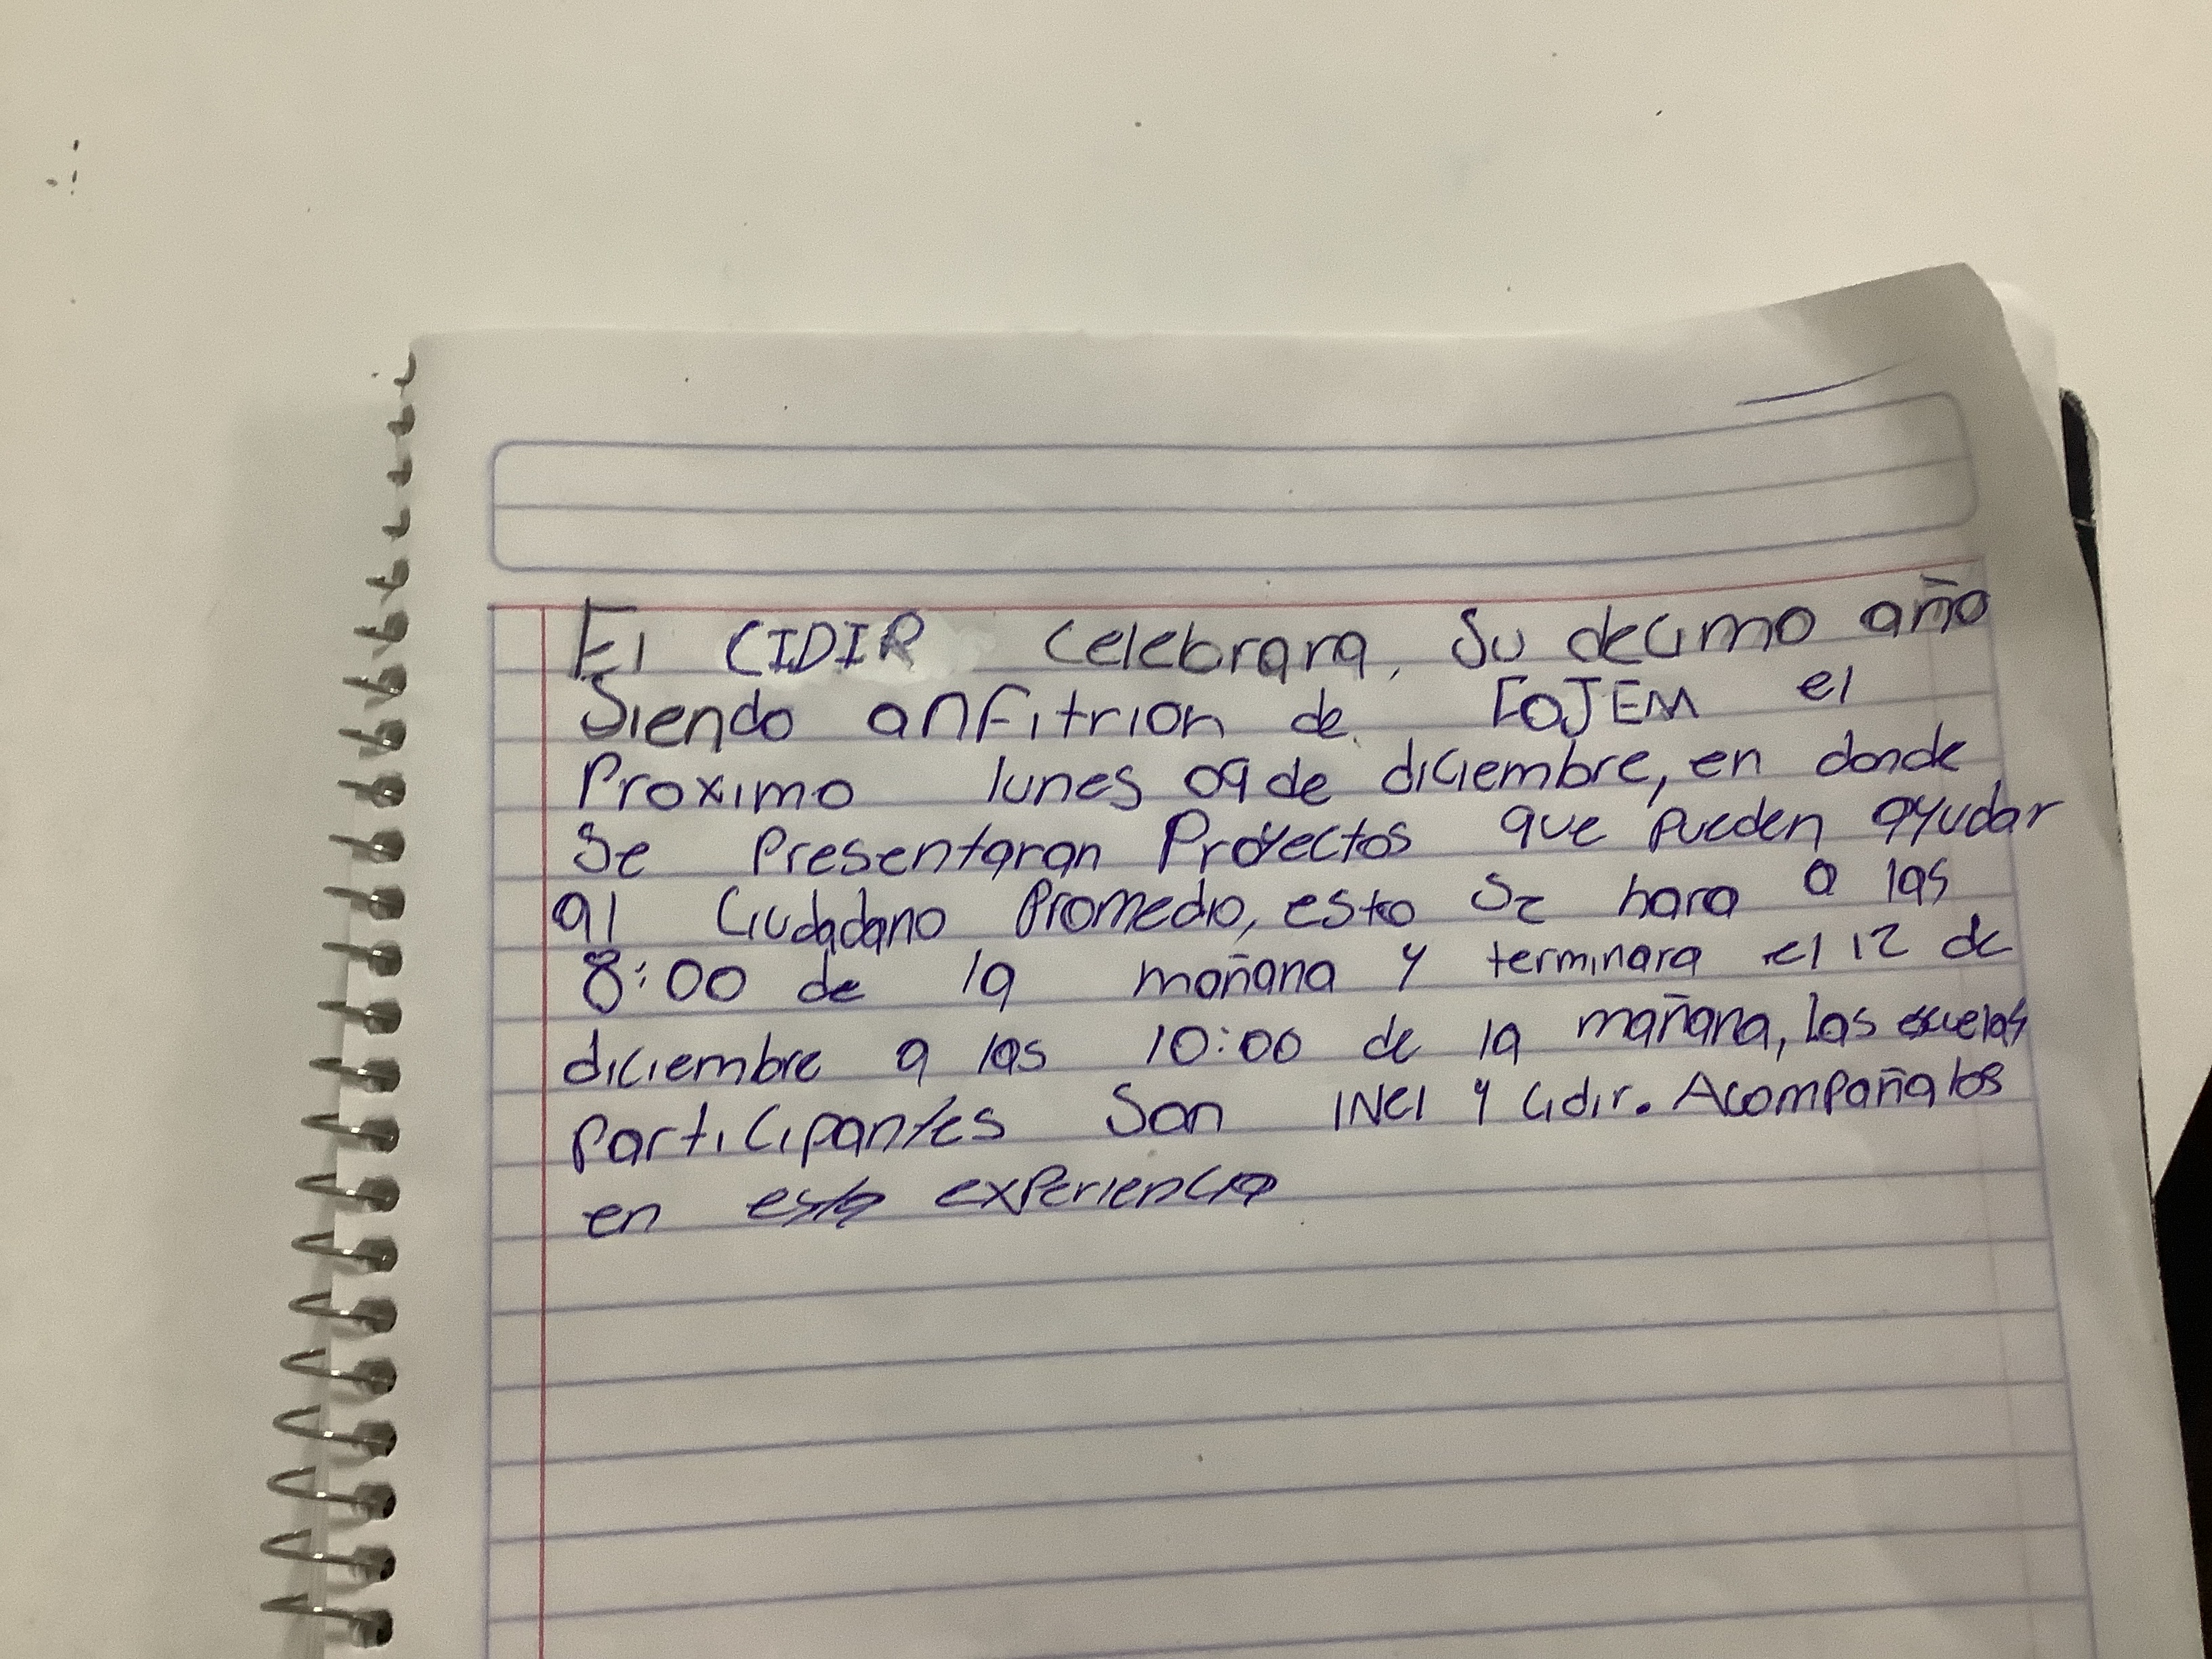 El CIDIR celebrara, Su decimo año
Siendo anfitrion de COJEM el
Proximo lunes 09 de diciembre, en donde
Se Presentaran Proyectos que pueden ayudar
al Ciudadano Promedio, esto se hara a las
8:00 de la mañana y terminara el 12 de
diciembre a las 10:00 de la mañana, las escuelas
participantes Son INCI y Cidir. Acompañalos
en esta experiencia